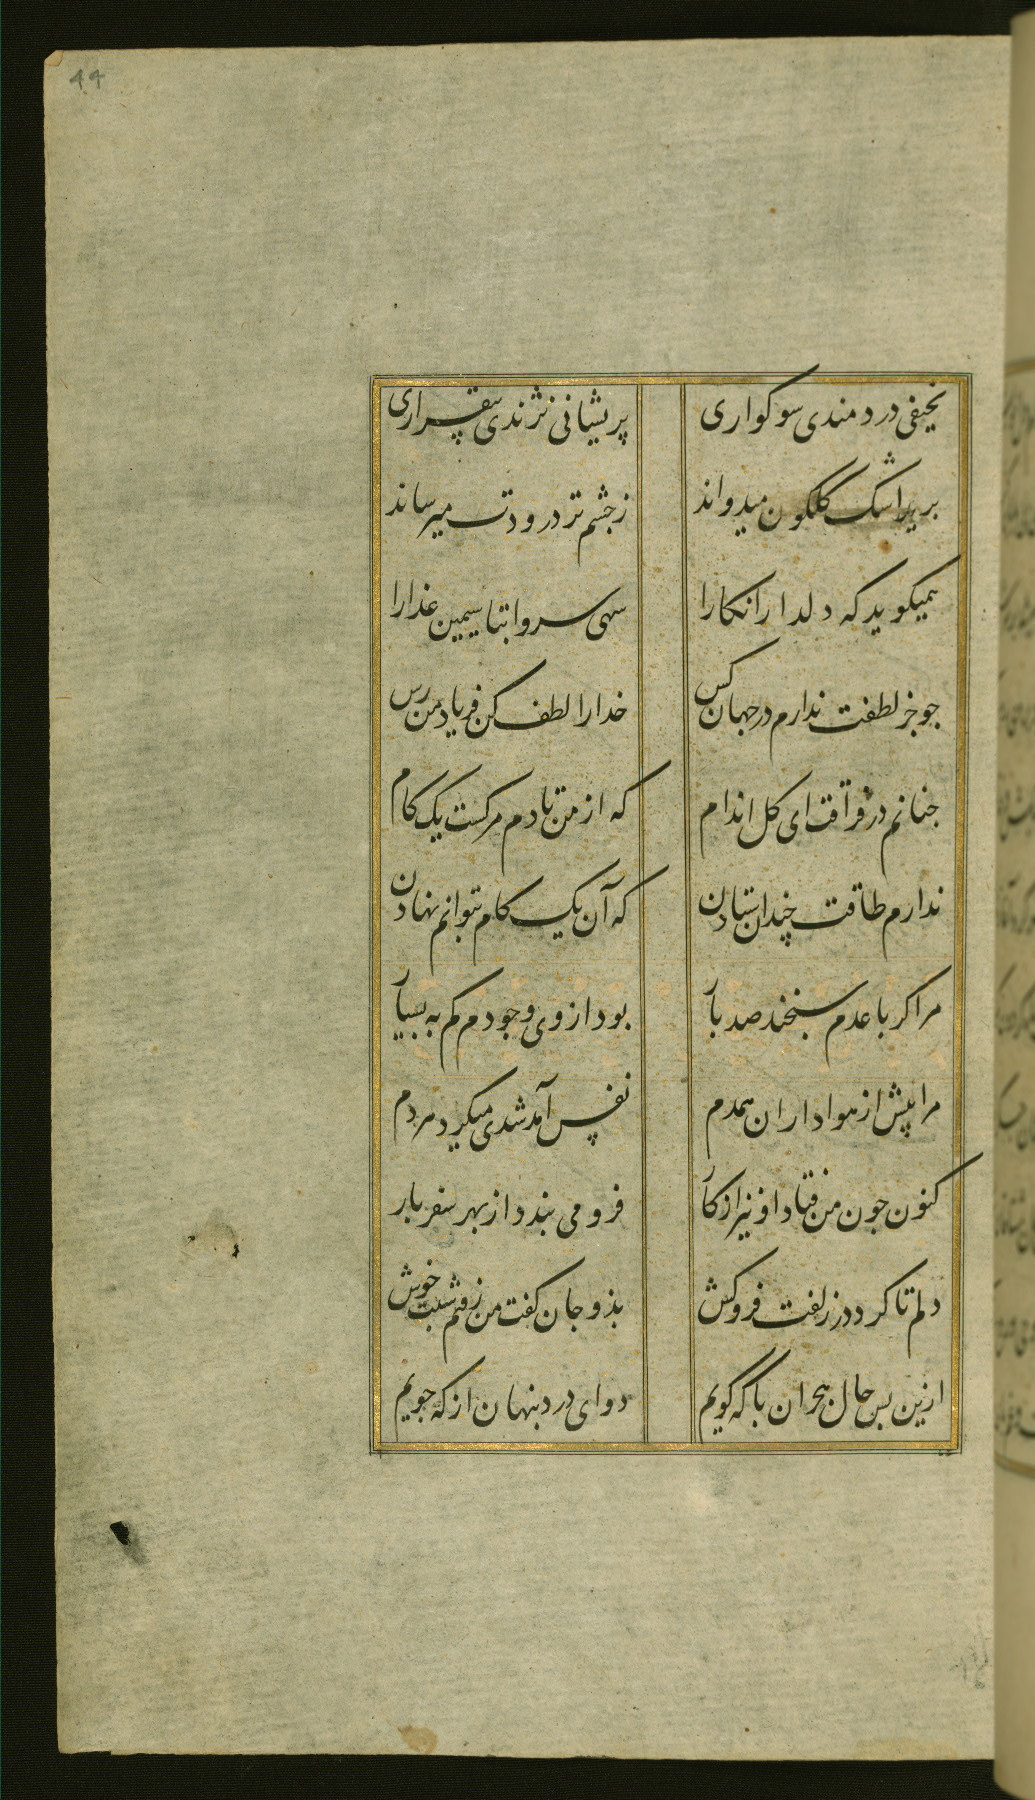 44
نحیفی دردمندی سوکواری
پریشانی نژندی بیقراری
برید اشک کلکون میدواند
زجشم تر درودت میرساند
همیکوید که دلدارا نکارا
سهی سروا بتا سیمین عذارا
جو جز لطفت ندارم در جهان کس
خدارا لطف کن فریاد من رس
جنانم در فراقت ای کل اندام
که از من تا دم مرکست یک کام
ندارم طاقت چندان ستادن
که آن یک کام بتوانم نهادن
مرا کر با عدم سنجند صد بار
بود از وی وجودم کم به بسیار
مرا پیش از هواداران همدم
نفس آمد شدی میکرد هر دم
کنون جون من فتاد او نیز از کار
فرو می بندد از بهر سفر بار
دلم تا کرد در زلفت فروکش
بدو جان کفت من رفتم شبت خوش
ازین بس حال هجران با که کویم
دوای درد بنهان از که جویم